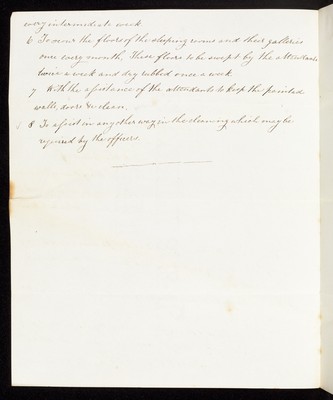 every intermediate week.
6 To scour the floors of the sleeping rooms and their galleries
once every month, These floors to be swept by the attendants
twice a week and dry rubbed once a week
7 With the assistance of the attendants to keep the painted
walls, doors &c clean.
8 To assist in any other way in the cleaning which may be
required by the officers.